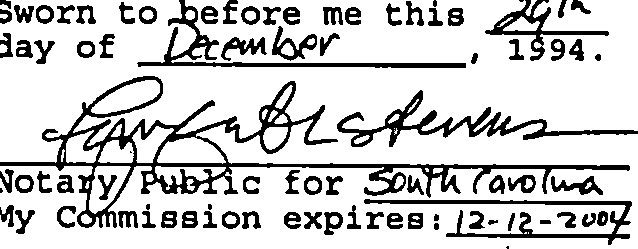 Sworn to before me this 29th
day of December, 1994.
Stevens
Notary Public for South Carolina
My Commission expires: 12-12-2004